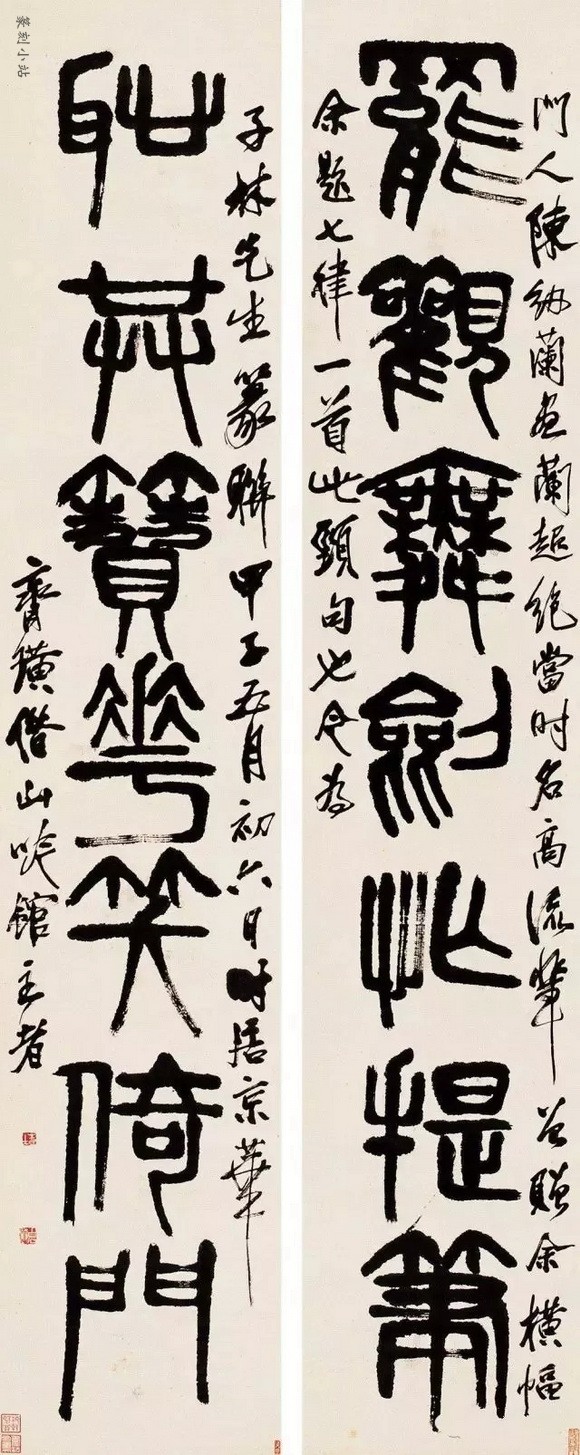 門人陳紉蘭畫蘭超絕當時名高流輩贈余橫幅
罷觀舞劍忙提筆
余題七律一首此頸句也今為
子林先生篆聯甲子五月初六日時居京華
耻共簪花笑倚門
齊璜借山吟館主者
篆刻小站